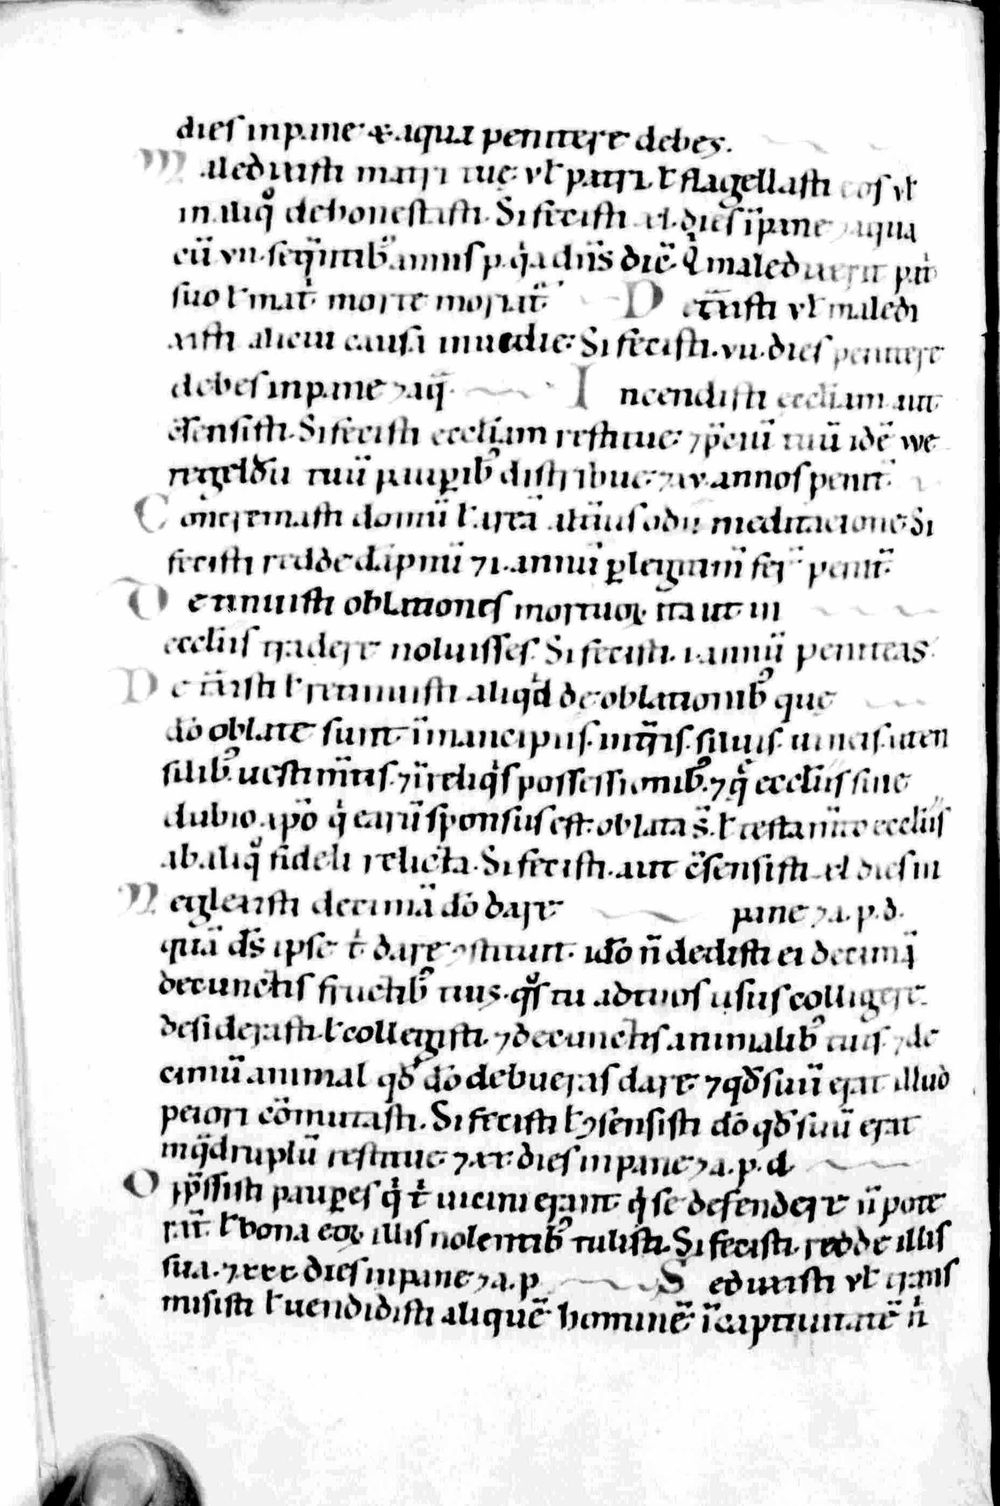 dies in pane & aqua penitere debes.
Maledixisti matri tuę vł patri. ł flagellasti eos vł
in aliqͦ dehonestasti. Si fecisti xl. dies ī pane ⁊ aqua
cū vii. seq̄ntibꝰ annis p. q̇a dn̄s dix̄. Q̇ maledixerit patͥ
suo ł matͥ morte moriat᷑ D etͣxisti vł maledi
xisti alicui causa inuidię. Si fecisti. vii. dies penitere
debes in pane ⁊ aq̄. I ncendisti eccłiam aut
c̄sensisti. Si fecisti eccłiam restitue. ⁊ p̄ciū tuū id ē we
regeldū tuū pauꝑibꝰ distribue. ⁊ xv. annos penit̄.
Concremasti domū ł areā alicuius odii meditatione. Si
fecisti redde dāpnū ⁊ i. annū ꝑ legitim̄ fer̄ penit̄.
Detinuisti oblationes mortuoꝝ ita ut in
eccłiis tradere noluisses. Si fecisti. i. annū peniteas
Detͣxisti ł retinuisti aliqͥd de oblationibꝰ quę
dō oblatę sunt ī mancipiis. in tr̄is. siluis. uineis. uten
silibꝰ. uestim̄tis. ⁊ ī reliqͥs possessionibꝰ. ⁊ q̄ eccłiis siue
dubio xp̄o qͥ earū sponsus est oblata s̄. ł testam̄to eccłiis
ab aliqͦ fideli relicta. Si fecisti. aut c̄sensisti xl dies in
Neglexisti decimā dō dare pane ⁊ a. p. d.
quā d̄s ipse tͥ dare ꝯstituit. id̄o n̄ dedisti ei decimā
de cunctis fructibꝰ tuis. qͦs tu ad tuos usus colligere
desiderasti. ł collegisti. ⁊ de cunctis animalibꝰ tuis. ⁊ de
cimū animal qd̄ dō debueras dare. ⁊ qd̄ suū erat illud
peiori cōmutasti. Si fecisti ł ꝯsensisti dō qd̄ suū erat
in q̄druplū restitue. ⁊ xx. dies in pane ⁊ a. p. d.
Opp̄ssisti pauꝑes qͥ tͥ uicini erant qͥ se defendere n̄ pote
rāt. ł bona eoꝝ illis nolentibꝰ tulisti. Si fecisti. redde illis
sua. ⁊ xxx dies in pane ⁊ a. p S eduxisti vł trans
misisti ł uendidisti aliquē hominē ī captiuitatē n̄